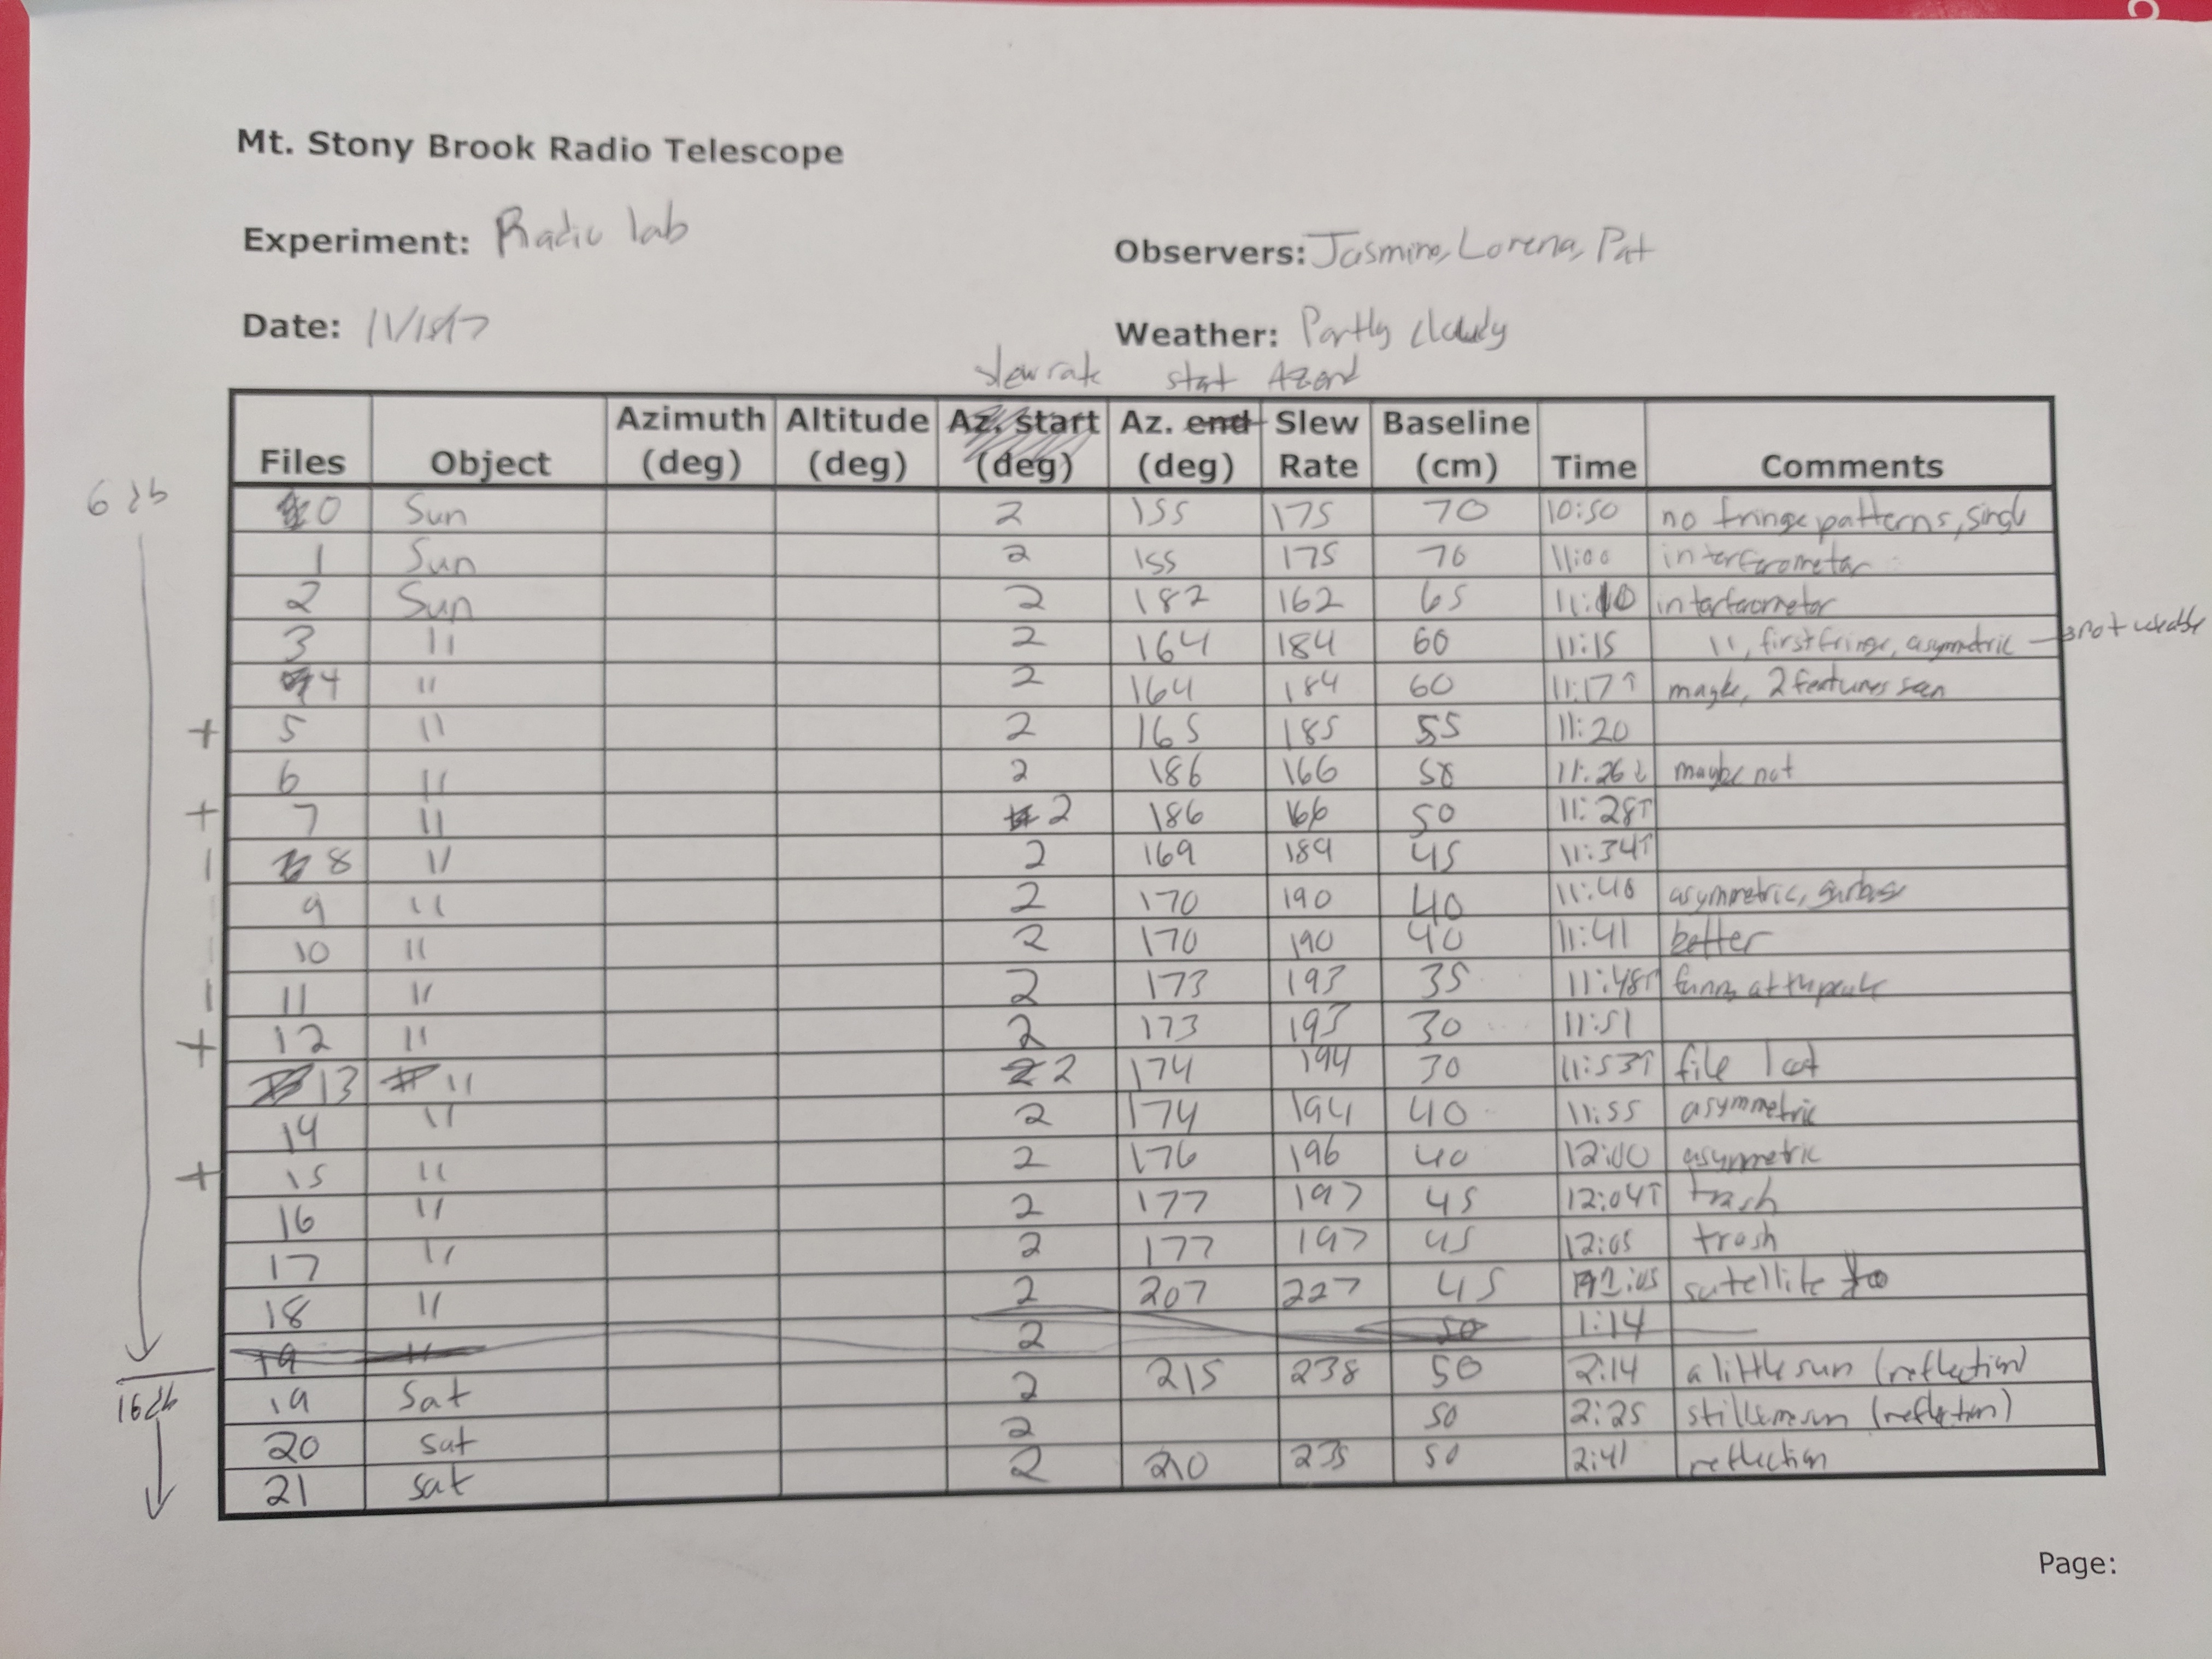 Mt. Stony Brook Radio Telescope
Experiment: Radio lab
Observers: Jasmine, Lorena, Pat
Date: 11/15/17
Weather: Partly cloudy
slew rate start Az end
Files Object Azimuth (deg) Altitude (deg) Az. start (deg) Az. end (deg) Slew Rate Baseline (cm) Time Comments
6 db
0 Sun 2 155 175 70 10:50 no fringe patterns, singl
1 Sun 2 155 175 70 11:00 interferometer
2 Sun 2 182 162 65 11:10 interferometer
3 " 2 164 184 60 11:15 ", first fringe, asymmetric → not useable
4 " 2 164 184 60 11:17↑ maybe, 2 features seen
+ 5 " 2 165 185 55 11:20
6 " 2 186 166 50 11:26↓ maybe not
+ 7 " 2 186 166 50 11:28↑
| 8 " 2 169 189 45 11:34↑
9 " 2 170 190 40 11:40 asymmetric,
10 " 2 170 190 40 11:41 better
| 11 " 2 173 193 35 11:48↑ funny at the peak
+ 12 " 2 173 193 30 11:51
13 " 2 174 194 30 11:53↑ file lost
14 " 2 174 194 40 11:55 asymmetric
+ 15 " 2 176 196 40 12:00 asymmetric
16 " 2 177 197 45 12:04↑ trash
17 " 2 177 197 45 12:05 trash
18 " 2 207 227 45 satellite
19 " 2 50 1:14
16 db
19 Sat 2 215 238 50 2:14 a little sun (reflection)
20 sat 2 50 2:25 still some sun (reflection)
21 sat 2 210 235 50 2:41 reflection
Page: